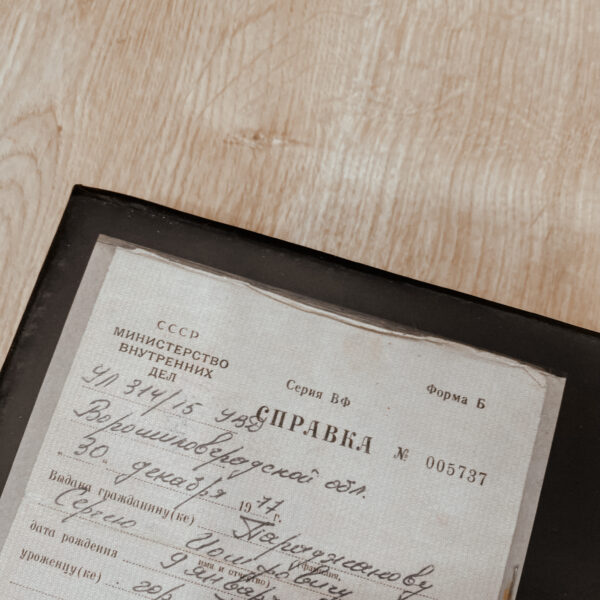 СССР
МИНИСТЕРСТВО
ВНУТРЕННИХ
ДЕЛ
Серия ВФ
Форма Б
УЛ 314/15 УВД
СПРАВКА № 005737
Ворошиловградской обл.
„30„ декабря 1977 г.
Выдана гражданину(ке) Параджанову
фамилия,
Сергею Иосифовичу
имя и отчество)
дата рождения 9 январ
уроженцу(ке) гор